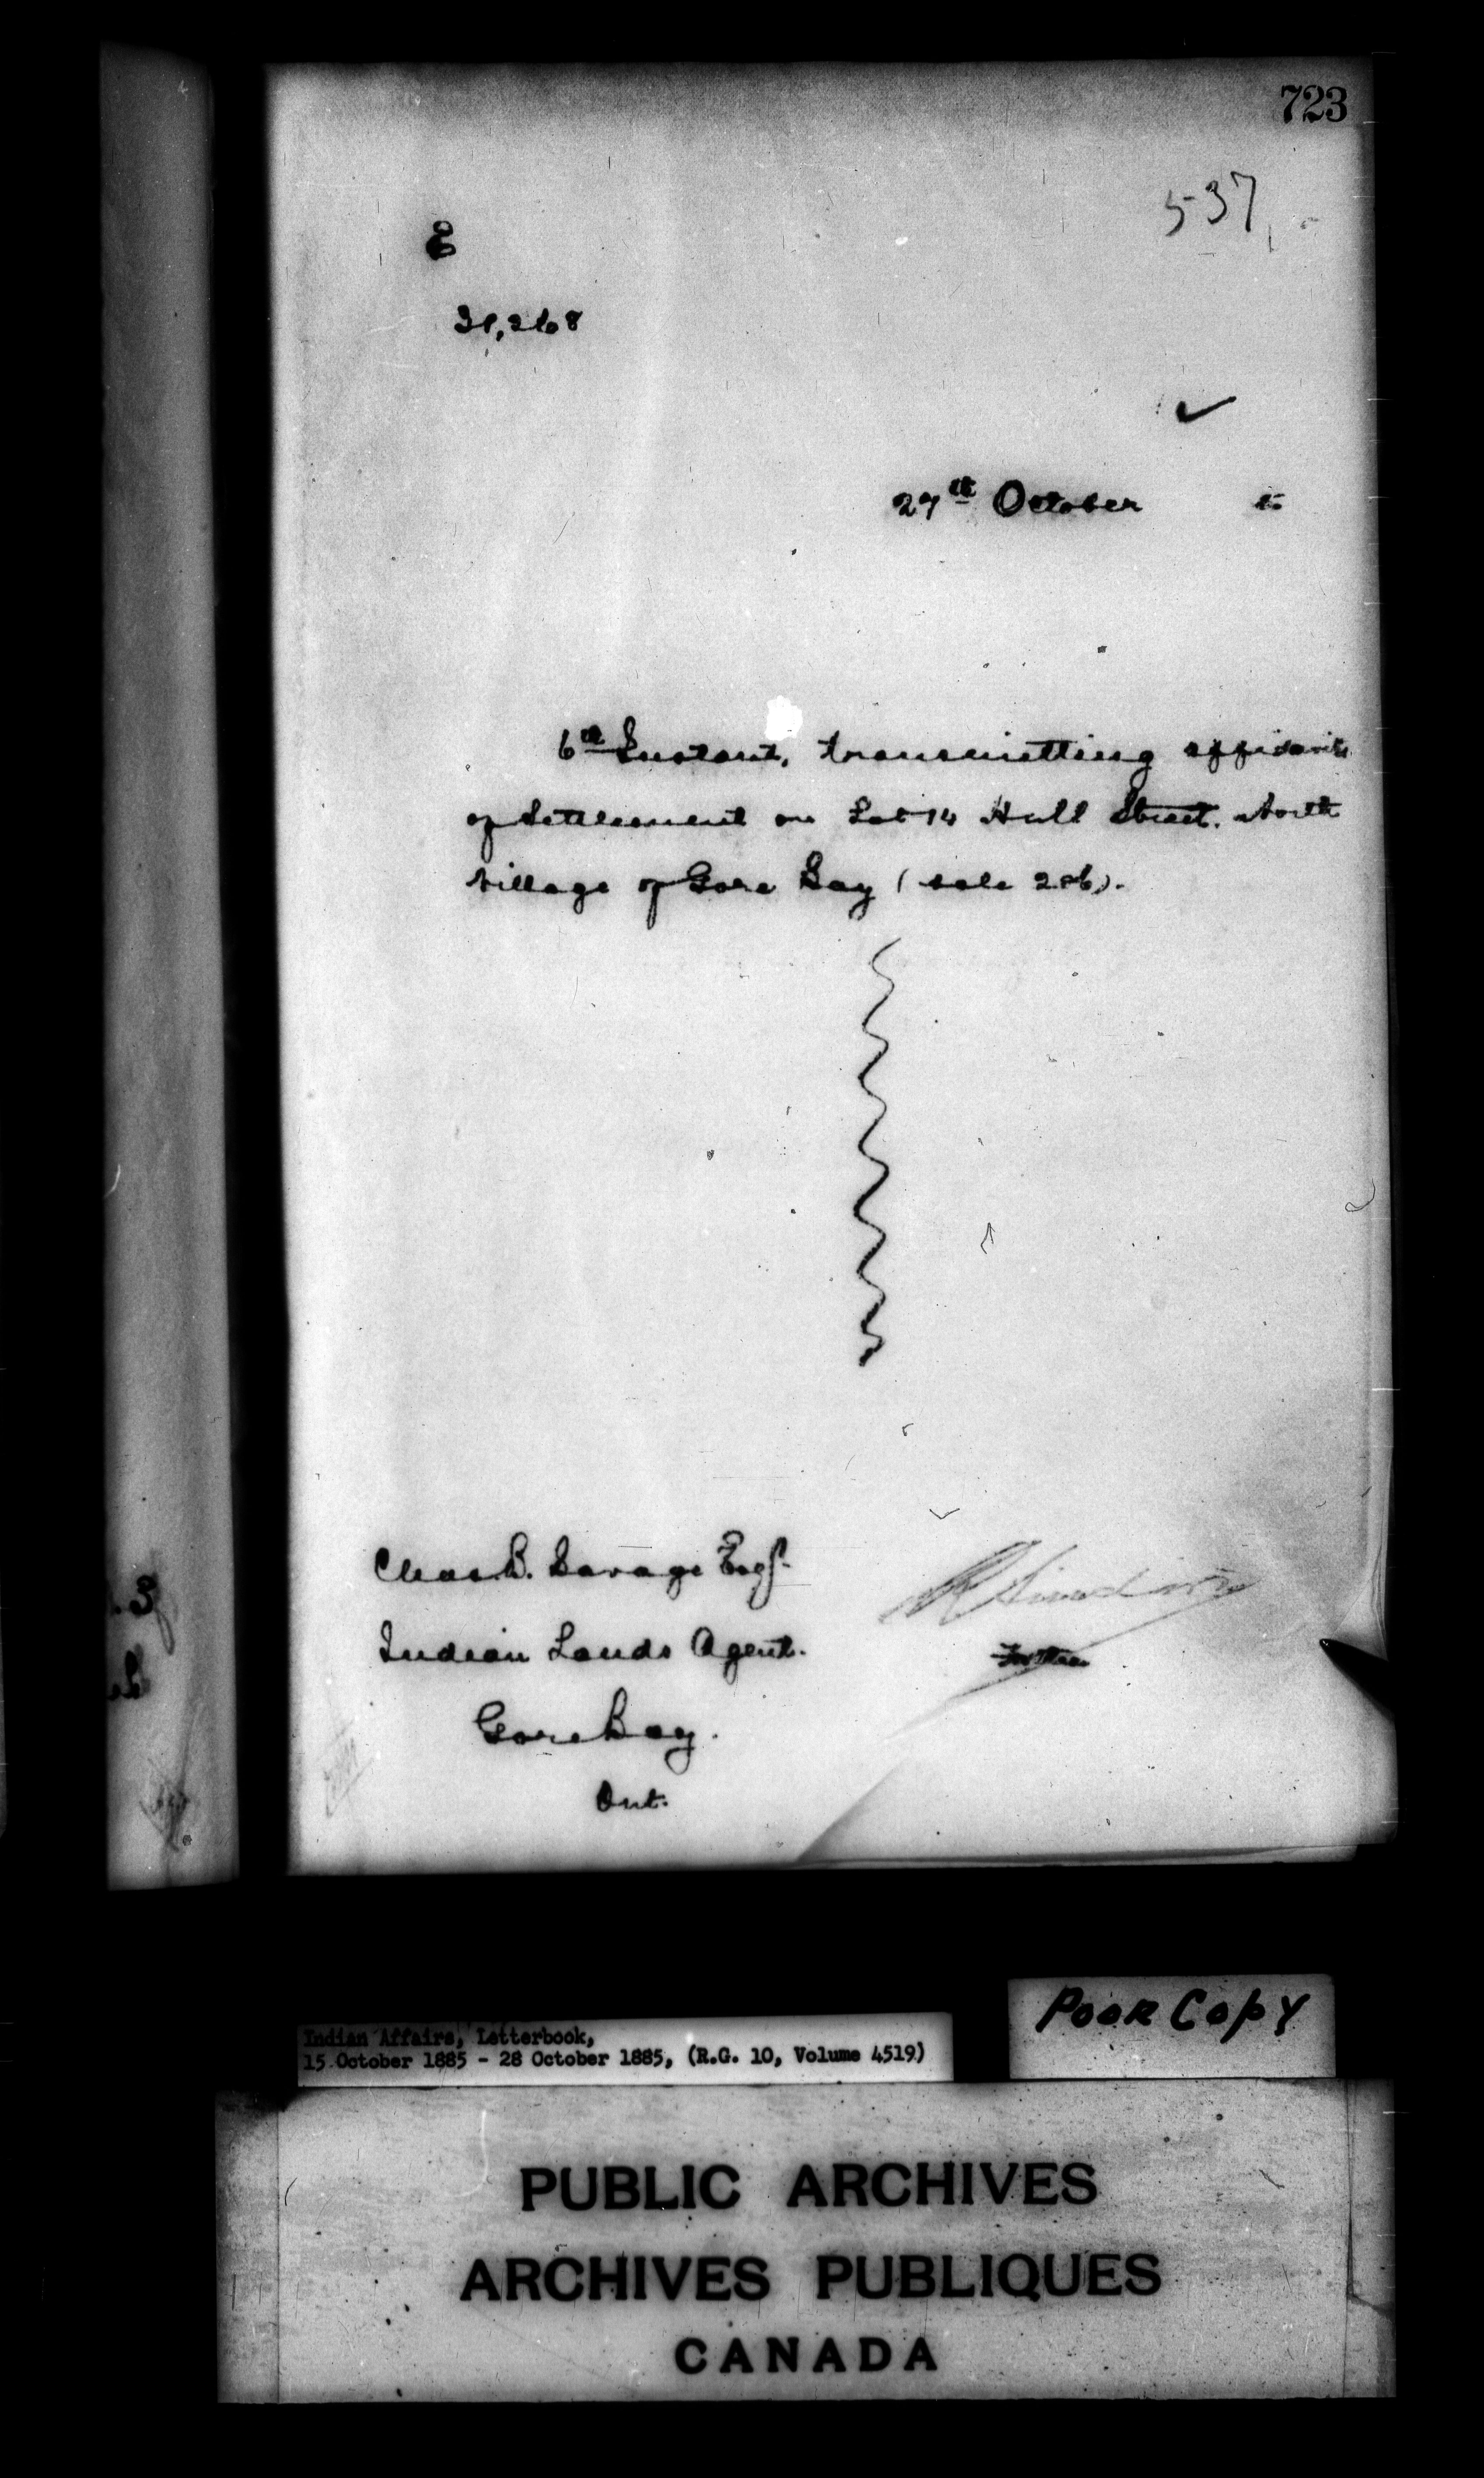 723
537
E
27th October 5
6th Instant, transmitting affidavits
of settlement on Lot 14 Hall Street. North
Village of Gore Bay (sale 286).
Chas. B. Savage Esq.
Indian Lands Agent.
Gore Bay.
Ont.
Poor Copy
Indian Affairs, Letterbook,
15 October 1885 - 28 October 1885, (R.G. 10, Volume 4519)
PUBLIC ARCHIVES
ARCHIVES PUBLIQUES
CANADA